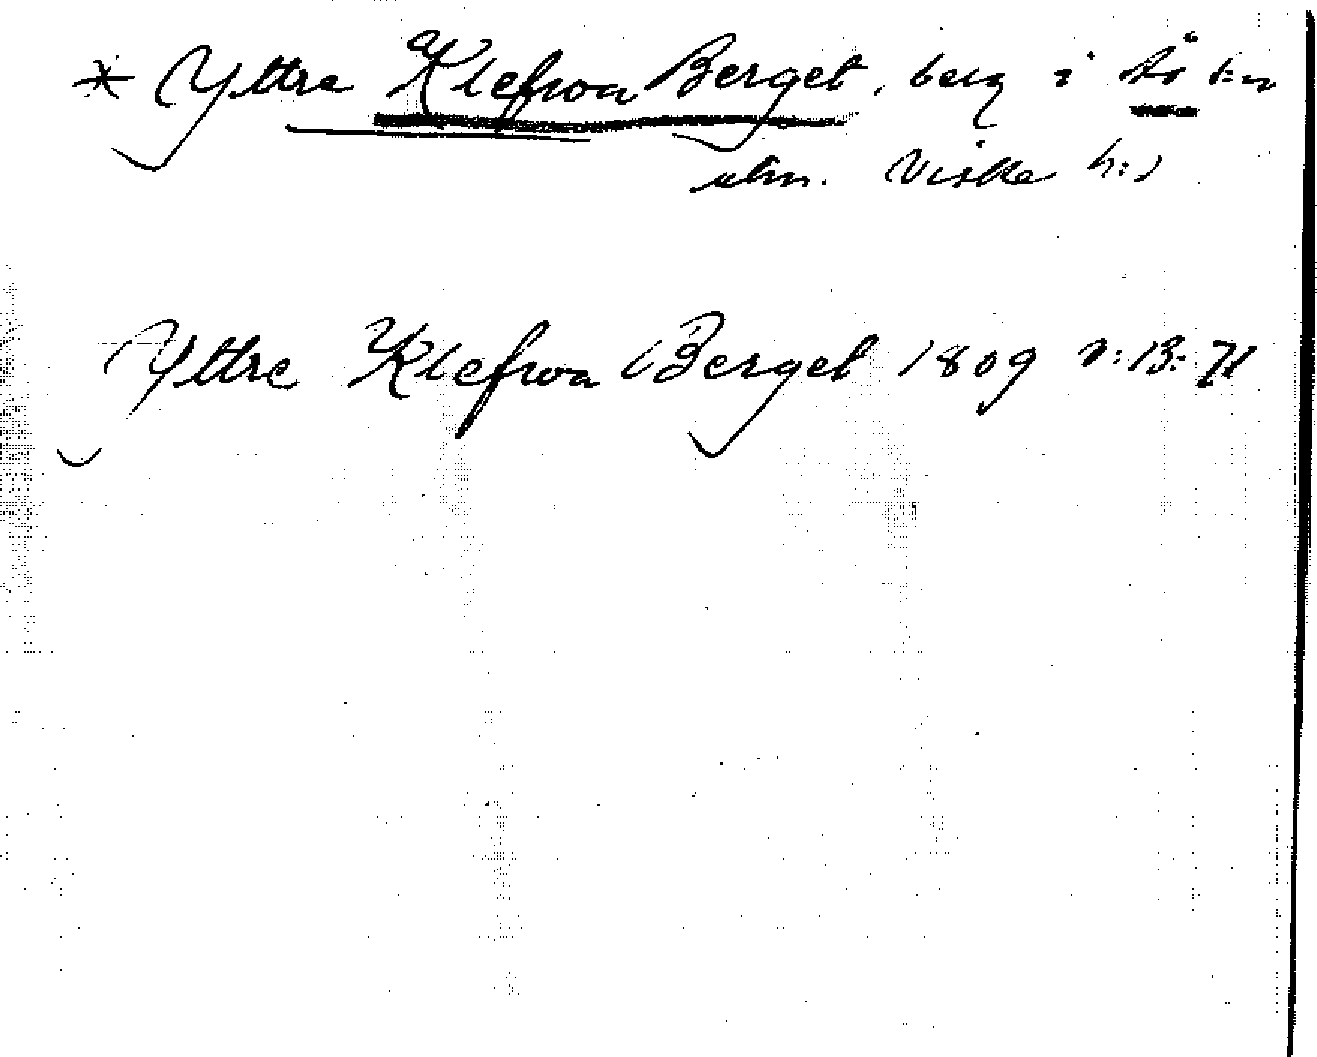 * Yttre Klefwa Berget, berg i Ås by
utm. Viske h:d
Yttre Klefwa Berget 1809 n:13:71